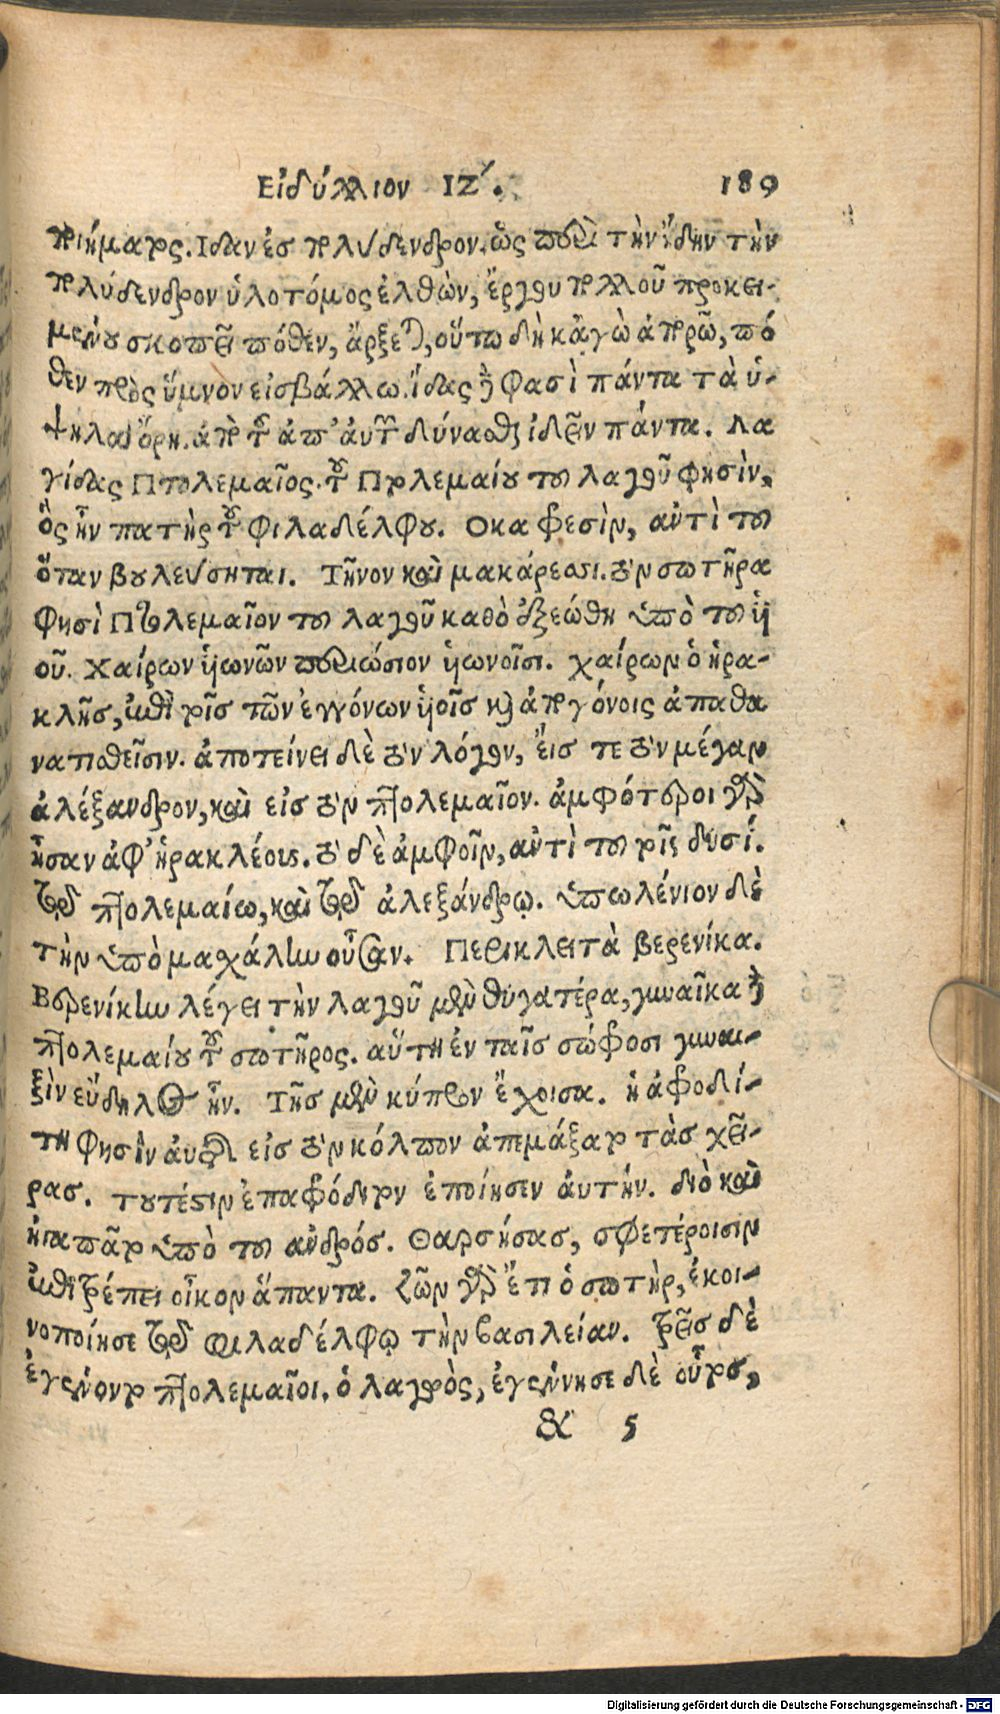 Εἰδύλλιον ΙΖ΄. 189
ποιήματος. Ιδαν ἐς πολύδενδρον. ὡς περὶ τὴν ἴδην τὴν
πολύδενδρον ὑλοτόμος ἐλθὼν, ἔργου πολλοῦ προκει-
μένου σκοπεῖ πόθεν, ἄρξεται, οὕτω δὴ κἀγὼ ἀπορῶ, πό
θεν πρὸς ὕμνον εἰσβάλλω. ἴδας φασὶ πάντα τὰ ὑ-
ψηλὰ ὄρη. ἀπὸ τοῦ ἀπ' αὐτῶν δύνασθαι ἰδεῖν πάντα. Λα
γίδας Πτολεμαῖος. τοῦ Πτολεμαίου τοῦ λαγοῦ φησὶν,
ὃς ἦν πατὴρ τοῦ Φιλαδέλφου. Οκα φεσὶν, αὐτὶ τοῦ
ὅταν βουλεύσηται. Τῆνον καὶ μακάρεσσι. τὸν σωτῆρα
Φησὶ Πτολεμαῖον τοῦ λαγοῦ καθὸ ἐξεώθη ὑπὸ τοῦ ὑϊ
οῦ. Χαίρων ὑϊωνῶν περιώσιον ὑϊωνοῖσι. χαίρων ὁ ἡρα-
κλῆς, ἐπὶ τοῖς τῶν ἐγγόνων ὑϊοῖς καὶ ἀπογόνοις ἀπαθα
νατισθεῖσιν. ἀποτείνει δὲ τὸν λόγον, ἔις τε τὸν μέγαν
ἀλέξανδρον, καὶ εἰς τὸν πτολεμαῖον. ἀμφότεροι γὰρ
ἦσαν ἀφ' ἡρακλέους. τὸ δὲ ἀμφοῖν, αὐτὶ τοῦ τοῖς δυσί.
τῷ πτολεμαίω, καὶ τῷ ἀλεξάνδρῳ. ὑπωλένιον δὲ
τὴν ὑπὸ μαχάλην οὖσαν. Περικλειτὰ βερενίκα.
Βερενίκην λέγει τὴν λαγοῦ μὲν θυγατέρα, γυναῖκα δὲ
πτολεμαίου τοῦ σωτῆρος. αὕτη ἐν ταῖς σώφροσι γυναι-
ξὶν εὔδηλος ἦν. Τῆς μὲν κύπρον ἔχοισα. ἡ ἀφροδί-
τη φησὶν ἀυτῆς εἰς τὸν κόλπον ἀπεμάξατο τὰς χεῖ-
ρας. τουτέστιν ἐπαφρόδιτον ἐποίησεν ἀυτήν. διὸ καὶ
ἠγαπᾶτο ὑπὸ τοῦ ἀνδρός. Θαρσήσας, σφετέροισιν
ἐπιτρέπει οἶκον ἅπαντα. ζῶν γὰρ ἔτι ὁ σωτὴρ, ἐκοι-
νοποίησε τῷ φιλαδέλφῳ τὴν βασιλείαν. τρεῖς δὲ
ἐγένοντο πτολεμαῖοι. ὁ λαγὸς, ἐγέννησε δὲ οὗτος,
& 5
Digitalisierung gefördert durch die Deutsche Forschungsgemeinschaft - DFG